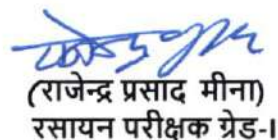 (राजेन्द्र प्रसाद मीना)
रसायन परीक्षक ग्रेड-।